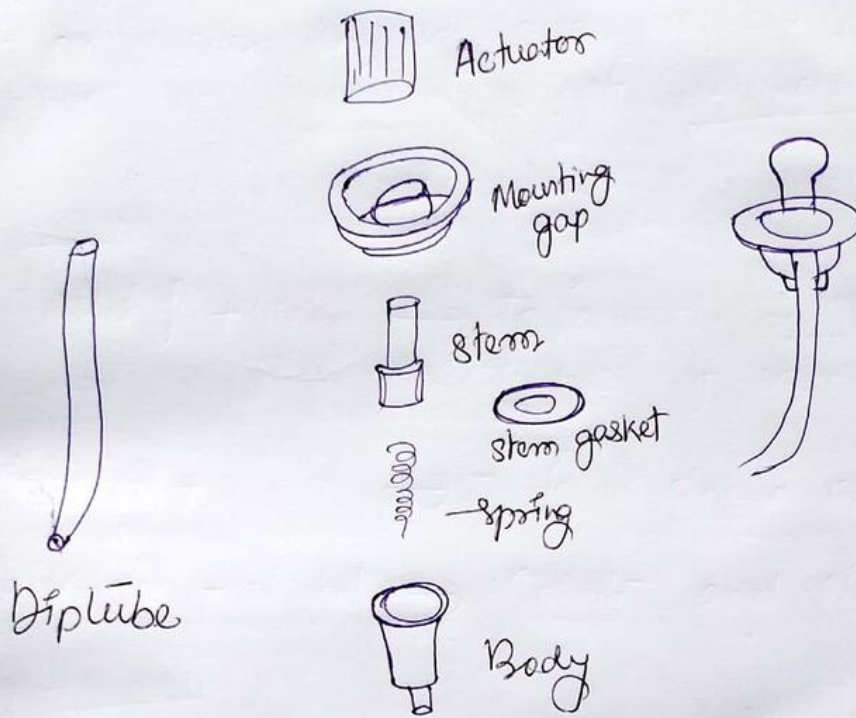 Actuator
Mounting
gap
stem
stem gasket
spring
Diptube
Body